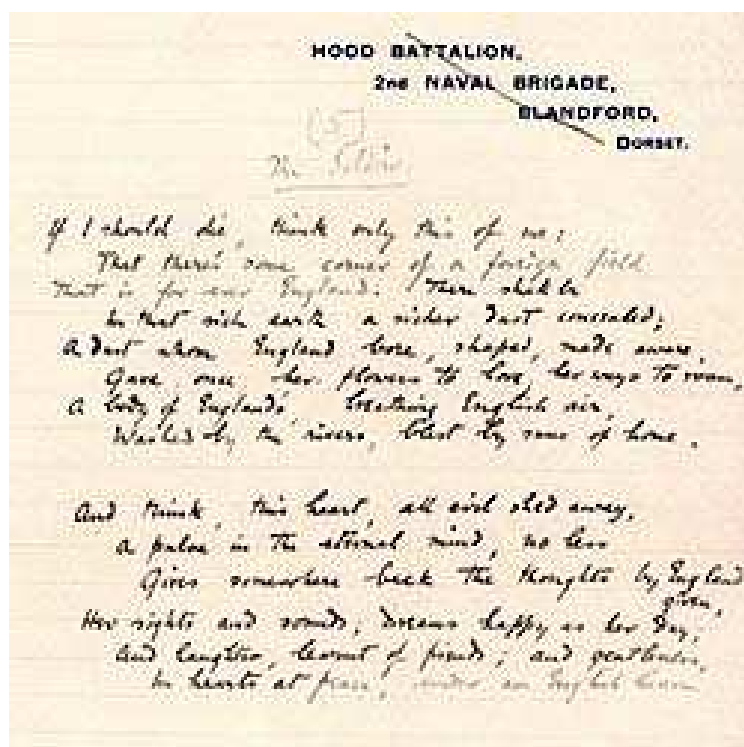 HOOD BATTALION,
2nd NAVAL BRIGADE,
BLANDFORD,
DORSET.
(5)
The Soldier
If I should die, think only this of me:
That there's some corner of a foreign field
That is for ever England. There shall be
In that rich earth a richer dust concealed;
A dust whom England bore, shaped, made aware,
Gave, once, her flowers to love, her ways to roam,
A body of England's breathing English air,
Washed by the rivers, blest by suns of home.
And think, this heart, all evil shed away,
A pulse in the eternal mind, no less
Gives somewhere back the thoughts by England
given,
Her sights and sounds; dreams happy as her day;
And laughter, learnt of friends; and gentleness,
In hearts at peace, under an English heaven